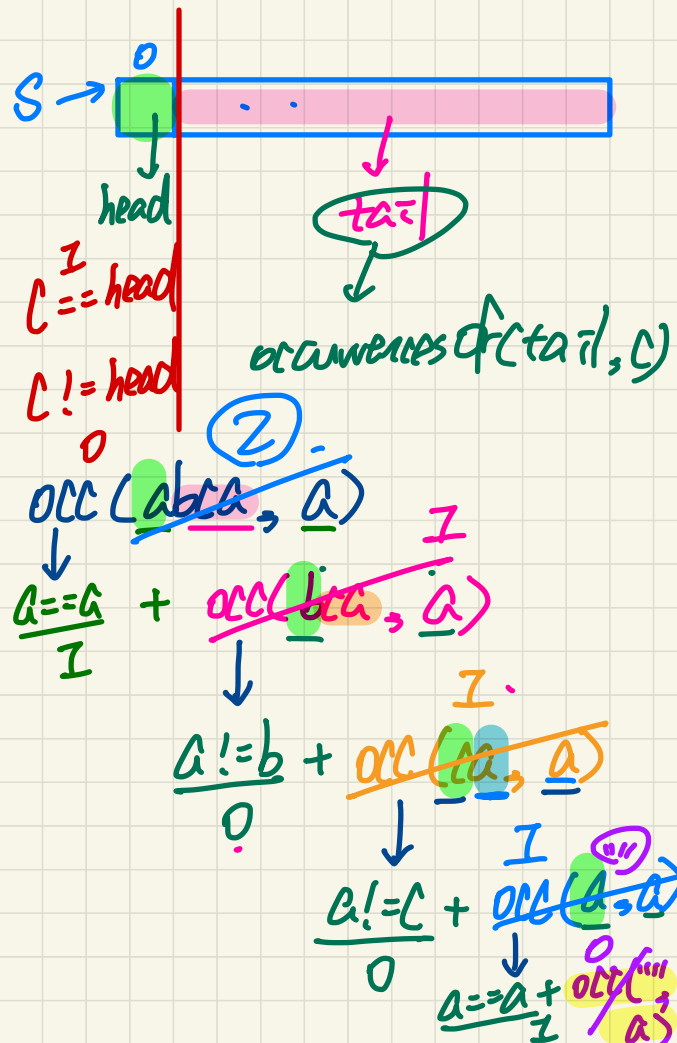 0
S →
head
tail
1
C == head
occurrencesOf(tail, c)
C != head
0
2
occ(abca, a)
1
a==a + occ(bca, a)
1
1
a!=b + occ(ca, a)
0
1
""
a!=c + occ(a, a)
0
0
a==a + occ("", a)
1